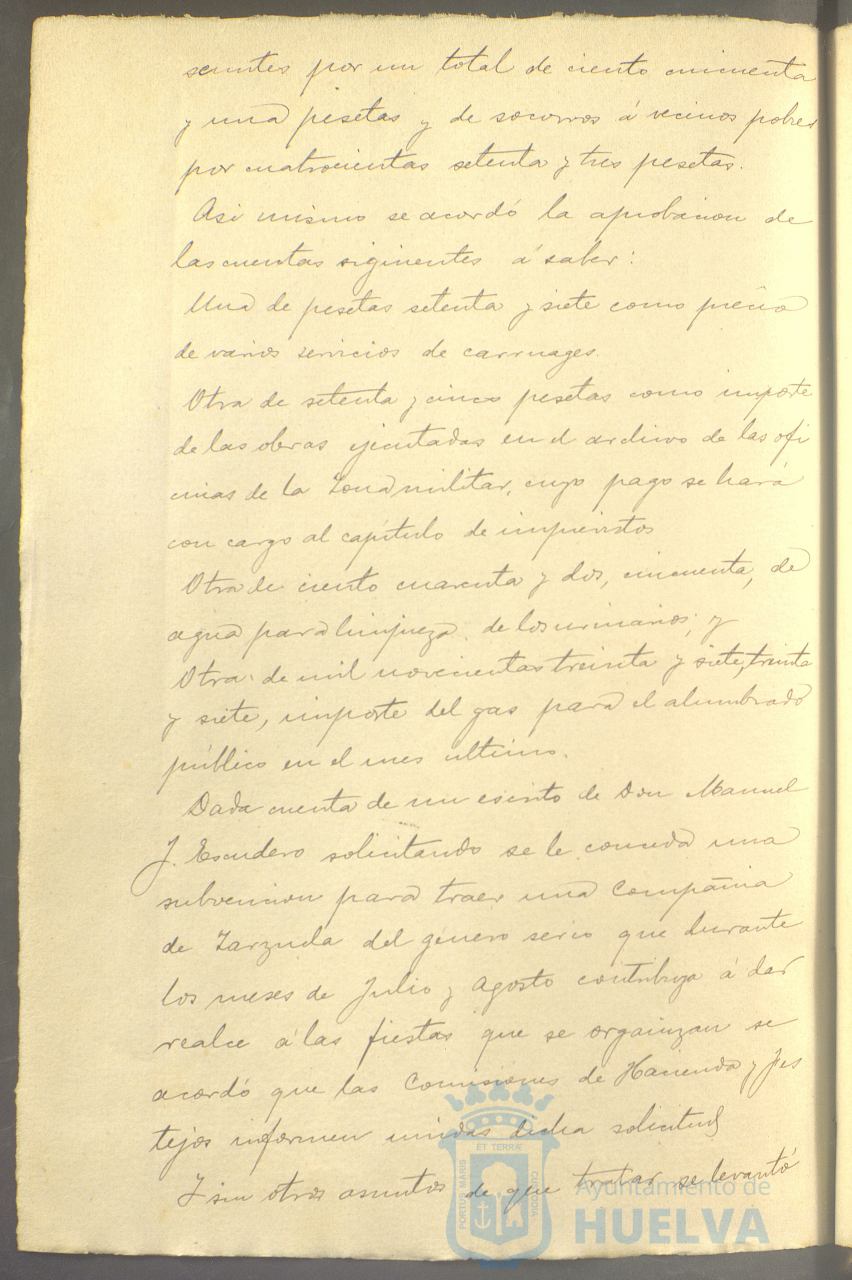 seuntes por un total de ciento cincuenta
y una pesetas y de socorros á vecinos pobres
por cuatrocientas setenta y tres pesetas.
Asi mismo se acordó la aprobacion de
las cuentas siginentes á saber:
Una de pesetas setenta y siete como precio
de varios servicios de carruages.
Otra de setenta y cinco pesetas como importe
de las obras ejecutadas en el archivo de las ofi
cinas de la Zona militar, cuyo pago se hará
con cargo al capítulo de imprevistos
Otra de ciento cuarenta y dos, cincuenta, de
agua para limpieza de los urinarios; y
Otra de mil novecientas treinta y siete, treinta
y siete, importe del gas para el alumbrado
público en el mes ultimo.
Dada cuenta de un escrito de Don Manuel
J. Escudero solicitando se le conceda una
subvencion para traer una Compañia
de Zarzuela del género serio que durante
los meses de Julio y Agosto contribuya á dar
realce á las fiestas que se organizan se
acordó que las Comisiones de Hacienda y Fes
tejos informen unidas dicha solicitud
Y sin otros asuntos de que tratar se levantó
ET TERRÆ
PORTUS MARIS
CUSTODIA
Ayuntamiento de
HUELVA